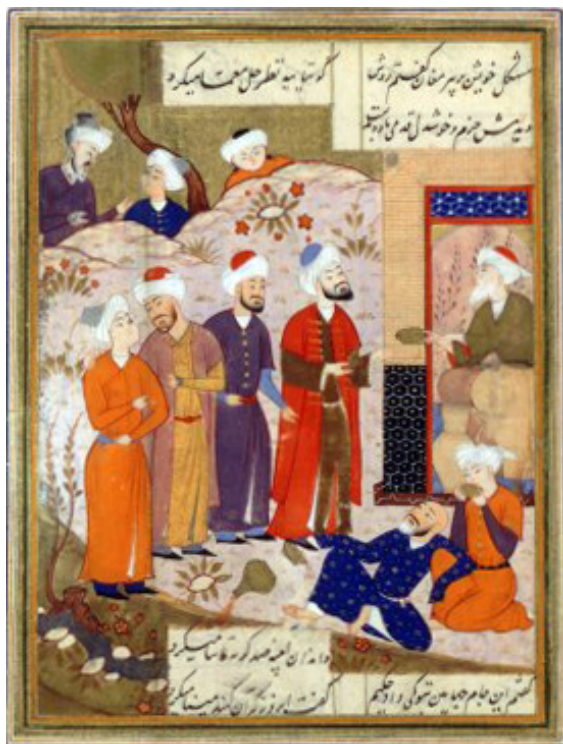 مشکل خویش بر پیر مغان گفتم دوش
کو بتایید نظر حل معما میکرد
دیدمش خرم و خوشدل قدحی باده بدست
واندران اینه صد گونه تماشا میکرد
گفتم این جام جهان بین بتو کی داد حکیم
گفت گنبد مینا میکرد